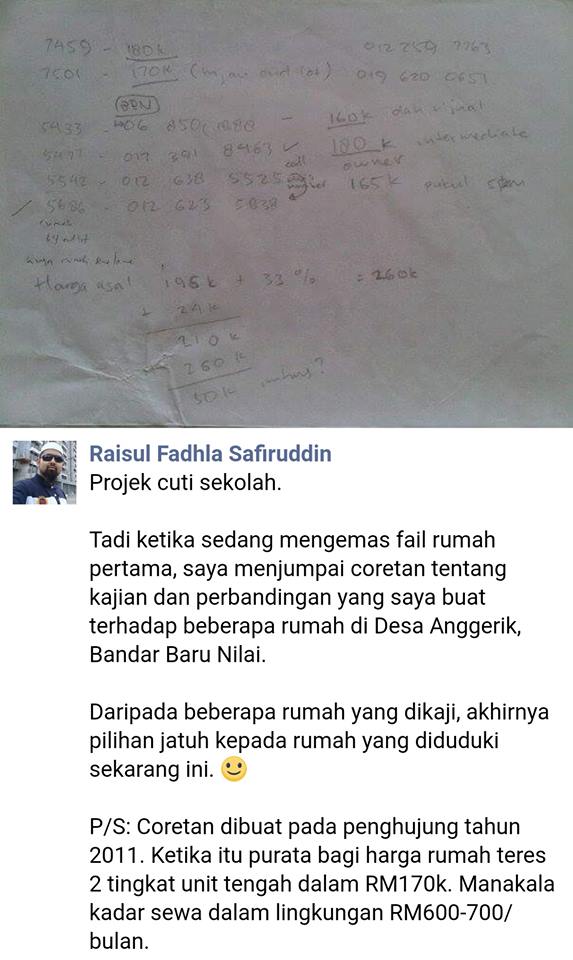 7459 - 180k 012 259 7763
7501 - 170k ( end lot) 019 620 0651
BBN
5433 - 406 850 1888 - 160k dan
5477 - 017 391 8463 ✓ 180k intermediate
call owner
5542 - 012 638 5525 165k pukul
5686 - 012 623 5838
rumah
Harga asal 195k + 33% = 260k
+ 24k
210k
260k
50k untung?
Raisul Fadhla Safiruddin
Projek cuti sekolah.
Tadi ketika sedang mengemas fail rumah
pertama, saya menjumpai coretan tentang
kajian dan perbandingan yang saya buat
terhadap beberapa rumah di Desa Anggerik,
Bandar Baru Nilai.
Daripada beberapa rumah yang dikaji, akhirnya
pilihan jatuh kepada rumah yang diduduki
sekarang ini. 🙂
P/S: Coretan dibuat pada penghujung tahun
2011. Ketika itu purata bagi harga rumah teres
2 tingkat unit tengah dalam RM170k. Manakala
kadar sewa dalam lingkungan RM600-700/
bulan.